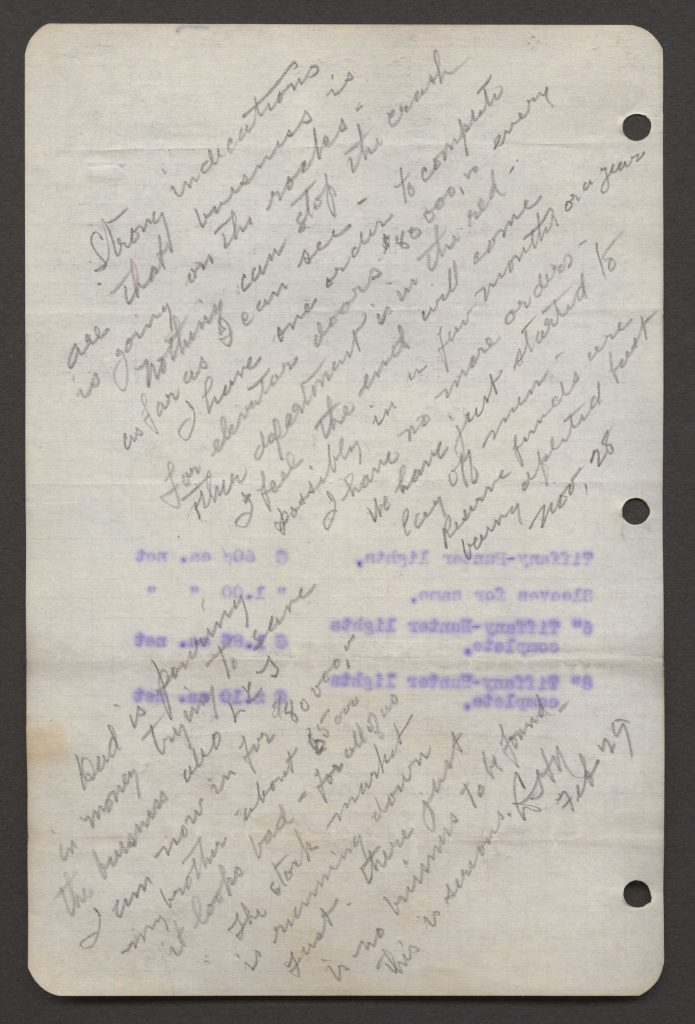 Strong indications
are that buisness is
is going on the rocks-
Nothing can stop the crash
as far as I can see-
I have one order to complete
for elevator doors $80000,00 every
other department is in the red-
I feel the end will come
possibly in a few months or a year
I have no more orders-
We have just started to
lay off men-
Reserve funds are
being depleted fast
Nov, 28
Tiffany-Hunter lights, @ 60¢ ea. net
Sleeves for same, " 1.00 " "
6" Tiffany-Hunter lights
complete, @ ea. net
8" Tiffany-Hunter lights
complete, @ 2.10 ea. net
Dad is pouring
in money trying to save
the buisness also
I am now in for $80000,00
my brother about
it looks bad- for all of us
The stock market
is running down
fast. there just
is no buisness to be found-
this is serious.
Feb 29